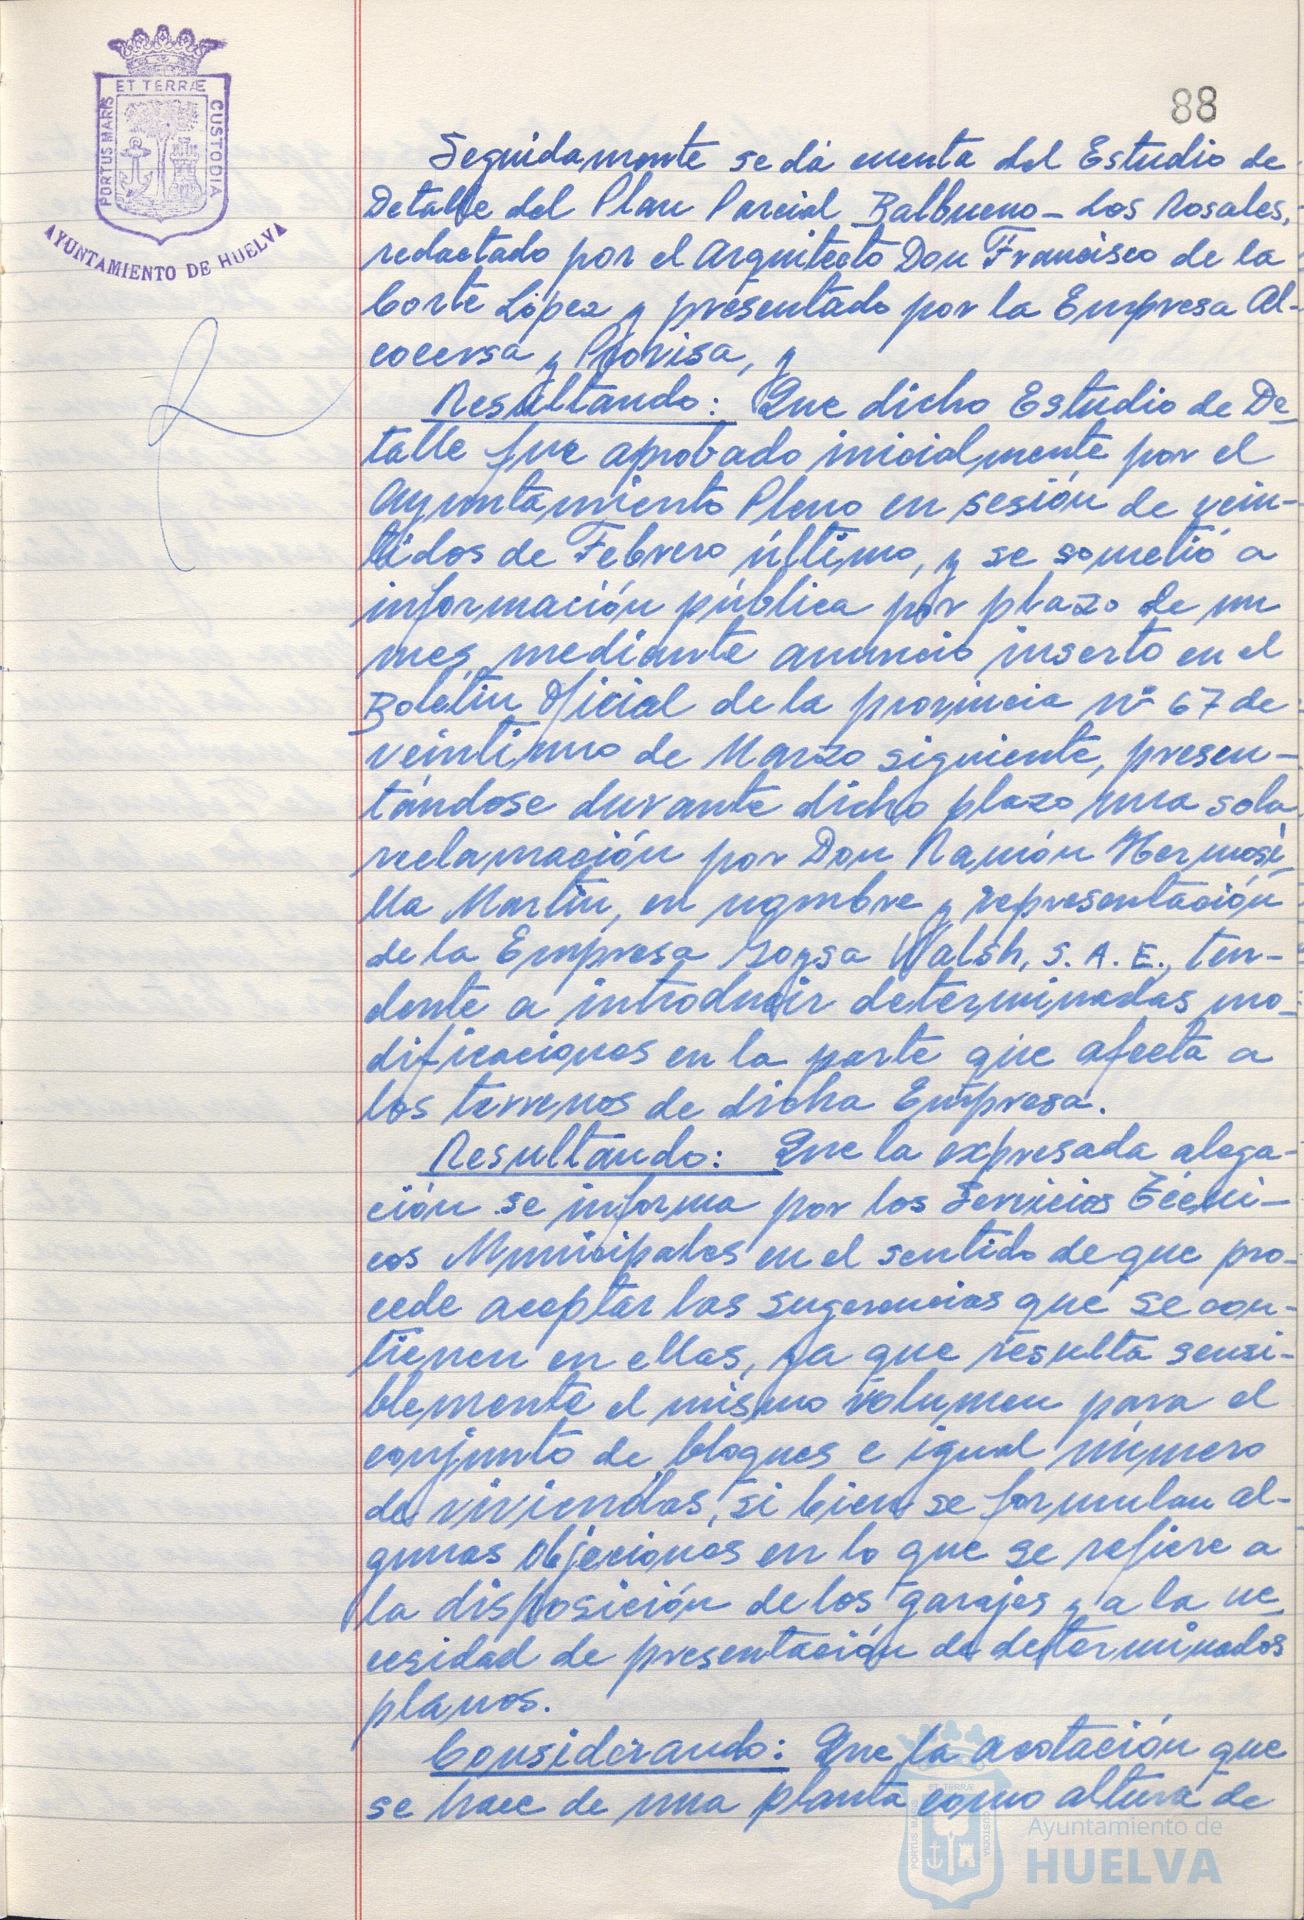 ET TERRÆ
PORTUS MARIS
CUSTODIA
AYUNTAMIENTO DE HUELVA
88
Seguidamente se dá cuenta del Estudio de
Detalle del Plan Parcial Balbueno-Los Rosales,
redactado por el Arquitecto Don Francisco de la
Corte López y presentado por la Empresa Al-
cocersa y Provisa, y
Resultando: Que dicho Estudio de De-
talle fue aprobado inicialmente por el
Ayuntamiento Pleno en sesión de vein-
tidos de Febrero último, y se sometió a
información pública por plazo de un
mes mediante anuncio inserto en el
Boletín Oficial de la provincia nº 67 de
veintiuno de Marzo siguiente, presen-
tándose durante dicho plazo una sola
reclamación por Don Ramón Hermosi-
lla Martin, en nombre y representación
de la Empresa Joysa Walsh, S. A. E., ten-
dente a introducir determinadas mo-
dificaciones en la parte que afecta a
los terrenos de dicha Empresa.
Resultando: Que la expresada alega-
ción se informa por los Servicios Técni-
cos Municipales en el sentido de que pro-
cede aceptar las sugerencias que se con-
tienen en ellas, ya que resulta sensi-
blemente el mismo volumen para el
conjunto de bloques e igual número
de viviendas, si bien se formulan al-
gunas objeciones en lo que se refiere a
la disposición de los garajes y a la ne-
cesidad de presentación de determinados
planos.
Considerando: Que la acotación que
se hace de una planta como altura de
ET TERRÆ
PORTUS MARIS
CUSTODIA
Ayuntamiento de
HUELVA